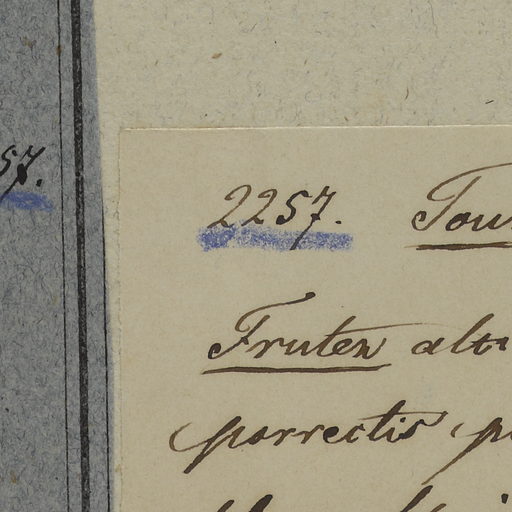 57.
2257. Tou
Frutex alti
porrectis p